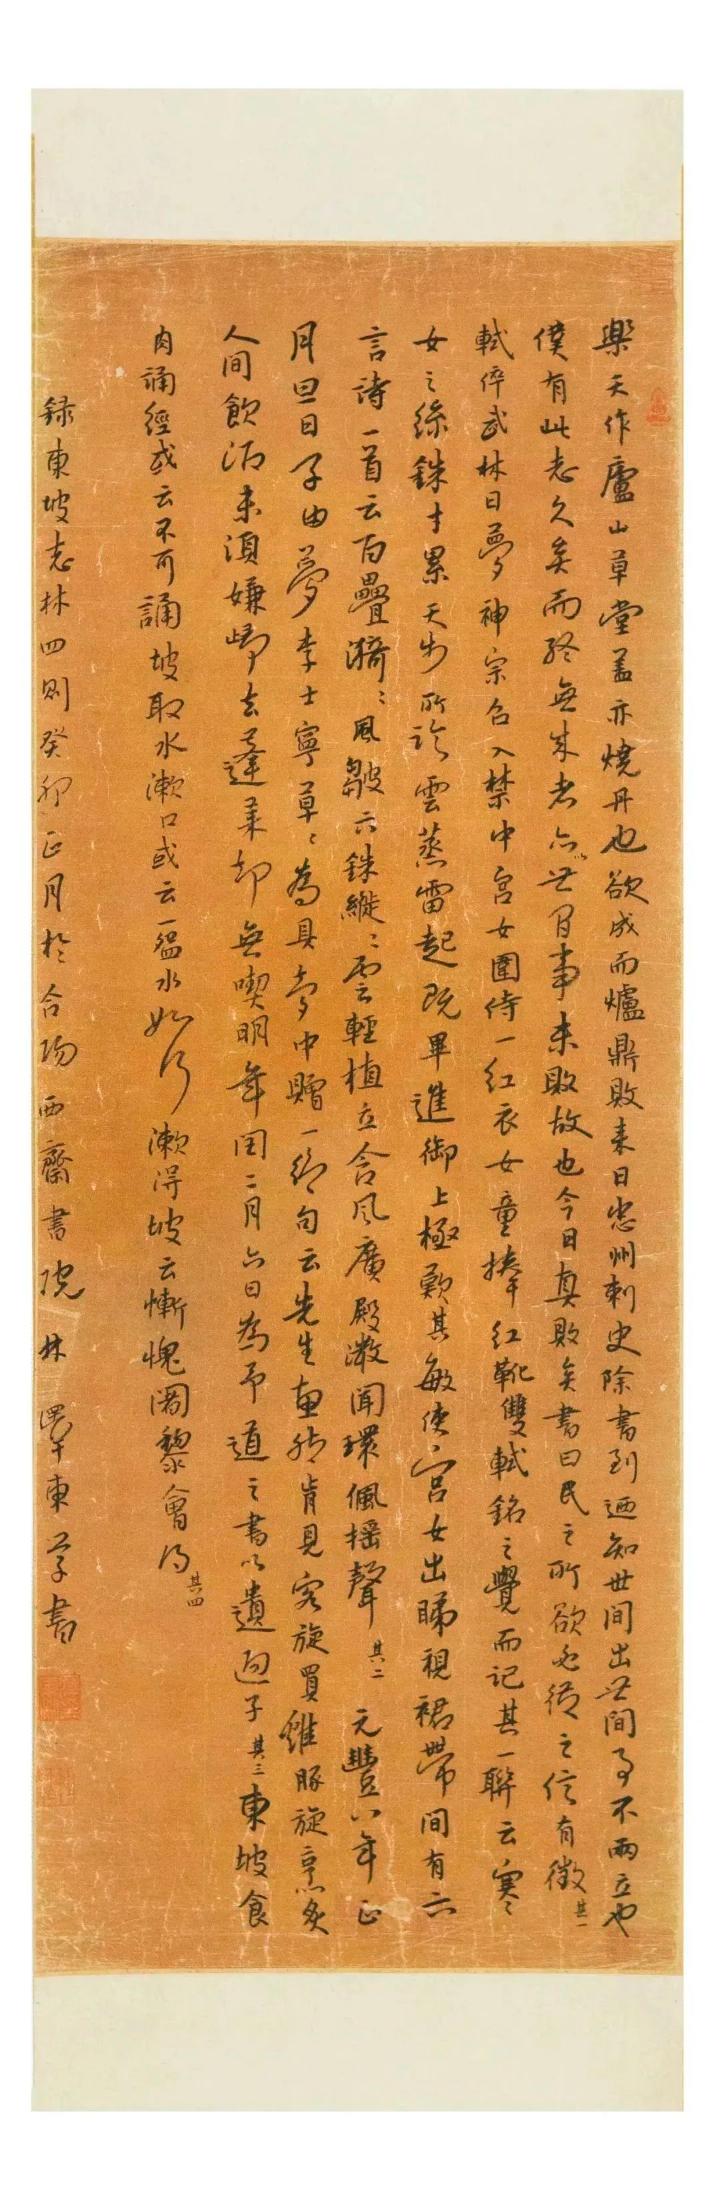 樂天作廬山草堂蓋亦燒丹也欲成而爐鼎敗來日忠州刺史除書到迺知世間出世間事不兩立也
僕有此志久矣而終無成者亦以世間事未敗故也今日真敗矣書曰民之所欲必從之信有徵其一
軾倅武林日夢神宗召入禁中宮女圍侍一紅衣女童捧紅靴一雙軾銘之覺而記其一聯云寒
女之絲銖寸累天步所臨雲蒸雷起既畢進御上極歎其敏使宮女出睇視裙帶間有六
言詩一首云百疊漪漪風皺六銖縰縰雲輕植立含風廣殿微聞環佩搖聲其二元豐八年正
月旦日子由夢李士寧草草為具夢中贈一絕句云先生惠然肯見客旋買雞豚旋烹炙
人間飲酒未須嫌歸去蓬萊却無喫明年閏二月六日為予道之書以遺遲子其三東坡食
肉誦經或云不可誦坡取水漱口或云一盌水如何漱得坡云慚愧闍黎會得其四
錄東坡志林四則癸卯正月於合陽西齋書院林
東草書